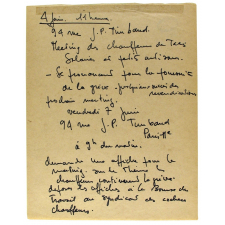 4 juin. 15 heures
94 rue J.P. Timbaud.
Meeting des chauffeurs de Taxi
Salariés et petits artisans.
- Se prononcent pour la poursuite
de la grève - revendications
prochain meeting.
vendredi 7 juin
94 rue J.P. Timbaud
Paris 11e
à 9h du matin.
demande une affiche pour le
meeting. sur le thème les
chauffeurs continuent la grève.
déposer les affiches à la Bourse du
travail au syndicat des cochers
chauffeurs.